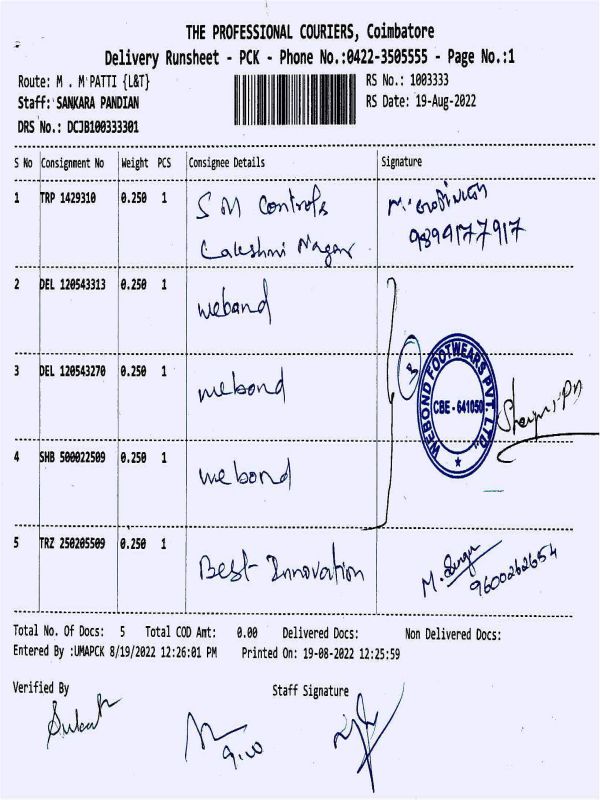 THE PROFESSIONAL COURIERS, Coimbatore
Delivery Runsheet - PCK - Phone No.:0422-3505555 - Page No.:1
Route: M . M'PATTI {L&T}
RS No.: 1003333
Staff: SANKARA PANDIAN
RS Date: 19-Aug-2022
DRS No.: DCJB100333301
S No Consignment No Weight PCS Consignee Details Signature
1 TRP 1429310 0.250 1 SM Controls
Lakshmi Nagar
9899177917
2 DEL 120543313 0.250 1 webond
3 DEL 120543270 0.250 1 webond
WEBOND FOOTWEARS PVT. LTD.
CBE - 641050
4 SHB 500022509 0.250 1 webond
5 TRZ 250205509 0.250 1 Best Innovation
9600262654
Total No. Of Docs: 5 Total COD Amt: 0.00 Delivered Docs: Non Delivered Docs:
Entered By :UMAPCK 8/19/2022 12:26:01 PM Printed On: 19-08-2022 12:25:59
Verified By Staff Signature